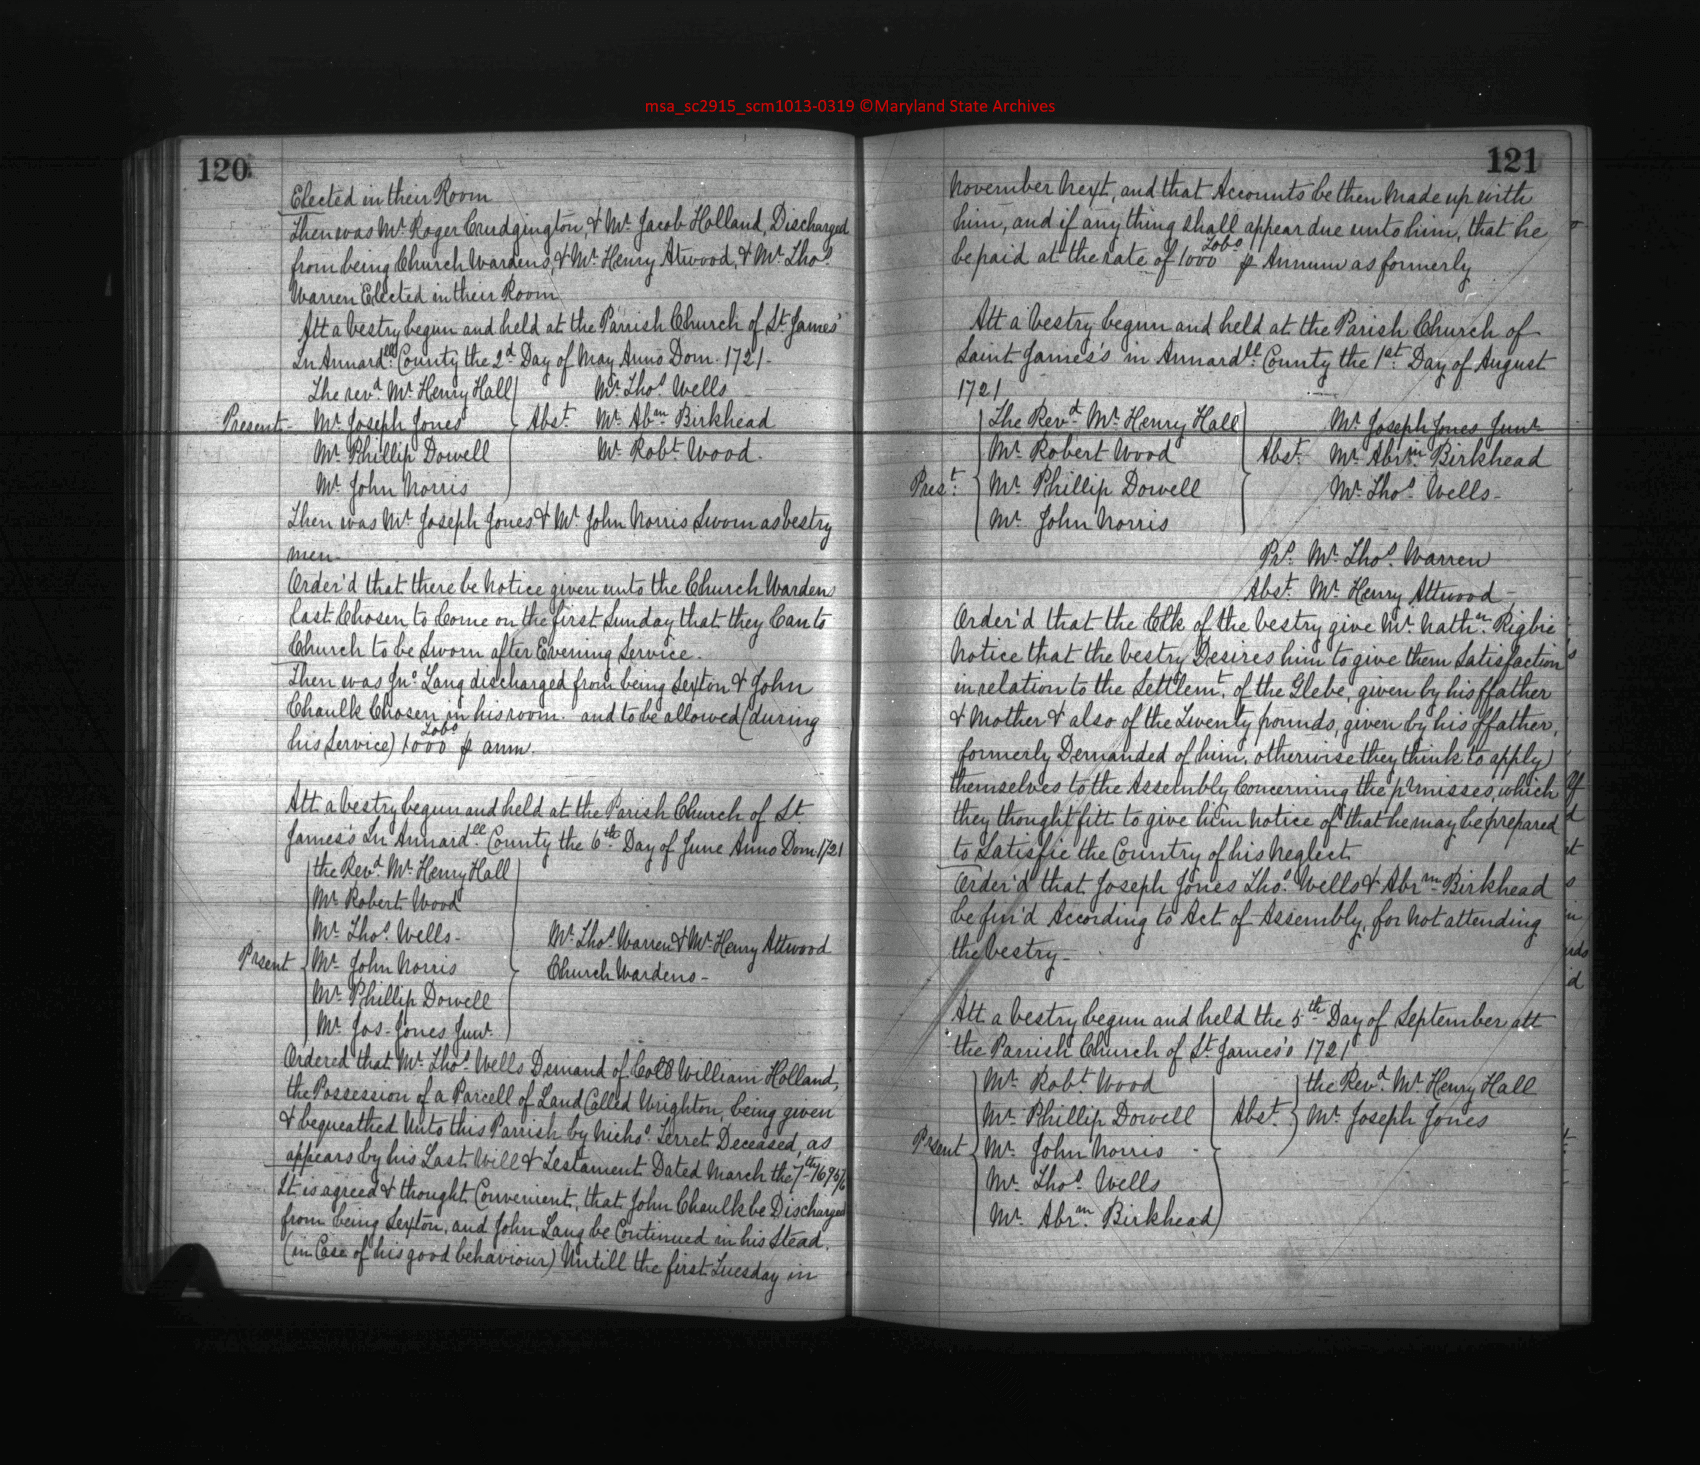 msa_sc2915_scm1013-0319 ©Maryland State Archives
120
Elected in their Room
Then was Mr. Roger Crudgington, & Mr. Jacob Holland, Discharged
from being Church Wardens, & Mr. Henry Atwood, & Mr. Thos.
Warren Elected in their Room
Att a Vestry begun and held at the Parrish Church of St. James'
In Annardll. County the 2d Day of May Anno Dom. 1721-
The revd. Mr. Henry Hall Mr. Thos. Wells
Present- Mr. Joseph Jones Abst. Mr. Abm. Birkhead
Mr. Phillip Dowell Mr. Robt. Wood.
Mr. John Norris
Then was Mr. Joseph Jones & Mr. John Norris Sworn as Vestry
men-
Order'd that there be Notice given unto the Church Wardens
last Chosen to Come on the first Sunday that they Can to
Church to be Sworn after Evening Service.
Then was Jno. Lang discharged from being Sexton & John
Chaulk Chosen in his room and to be allowed (during
his Service) 1000 lobs ⅌ anm.
Att a Vestry begun and held at the Parish Church of St.
James's In Annardll. County the 6th Day of June Anno Dom. 1721
the Revd. Mr. Henry Hall
Mr. Robert Wood
Mr. Thos. Wells- Mr. Thos. Warren & Mr. Henry Attwood
Prsent Mr. John Norris Church Wardens-
Mr. Phillip Dowell
Mr. Jos- Jones Junr.
Ordered that Mr. Thos. Wells Demand of Coll William Holland,
the Possession of a Parcell of Land Called Wrighton, being given
& bequeathed Unto this Parrish by Nichs. Terret Deceased, as
appears by his Last Will & Testament Dated March the 7th
It is agreed & thought Convenient, that John Chaulk be Discharged
from being Sexton, and John Lang be Continued in his Stead,
(in Case of his good behaviour) Untill the first Tuesday in
121
November Next, and that Accounts be then Made up with
him, and if anything Shall appear due unto him, that he
be paid at the rate of 1000 lobs ⅌ Annum as formerly
Att a Vestry begun and held at the Parish Church of
Saint James's in Annardll. County the 1st. Day of August
1721
The Revd. Mr. Henry Hall Mr. Joseph Jones Junr
Mr. Robert Wood Abst. Mr. Abrm. Birkhead
Prest. Mr. Phillip Dowell Mr. Thos. Wells-
Mr. John Norris
Prs. Mr. Thos. Warren
Abst. Mr. Henry Attwood-
Order'd that the Clk of the Vestry give Mr. Nathn. Rigbie
Notice that the Vestry Desires him to give them Satisfaction
in relation to the Settlemt. of the Glebe, given by his ffather
& Mother & also of the Twenty pounds, given by his ffather,
formerly Demanded of him, otherwise they think to apply
themselves to the Assembly Concerning the prmisses, which
they thought fitt to give him notice of that he may be prepared
to Satisfie the Country of his Neglect.
Order'd that Joseph Jones Thos. Wells & Abrm. Birkhead
be fin'd According to Act of Assembly, for not attending
the Vestry-
Att a Vestry begun and held the 5th Day of September att
the Parrish Church of St. James's 1721
Mr. Robt. Wood the Revd. Mr. Henry Hall
Mr. Phillip Dowell Abst. Mr. Joseph Jones
Prsent Mr. John Norris
Mr. Thos. Wells
Mr. Abrm. Birkhead